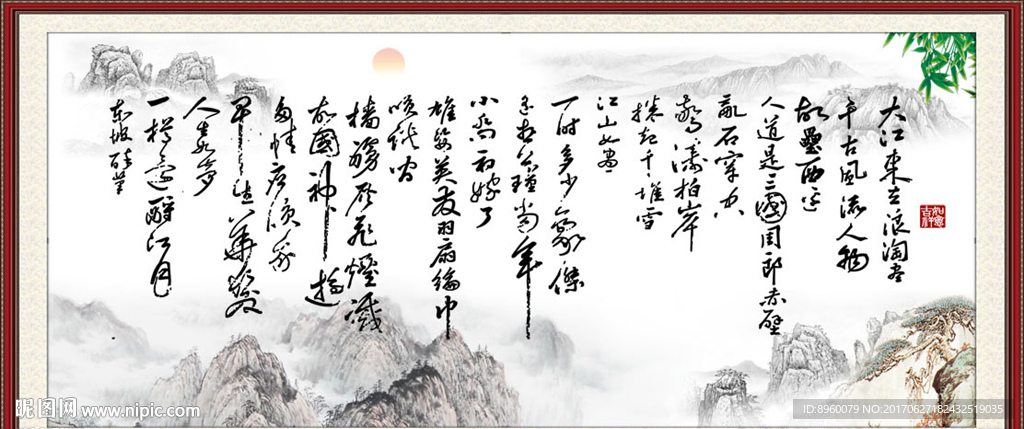 大江東去浪淘盡
千古風流人物
故壘西邊
人道是三國周郎赤壁
亂石穿空
驚濤拍岸
捲起千堆雪
江山如畫
一時多少豪傑
遙想公瑾當年
小喬初嫁了
雄姿英發羽扇綸巾
談笑間
檣櫓灰飛煙滅
故國神遊
多情應笑我
早生華髮
人生如夢
一樽還酹江月
東坡醉筆
如意吉祥
昵图网 www.nipic.com
ID:8960079 NO:20170627182432519035